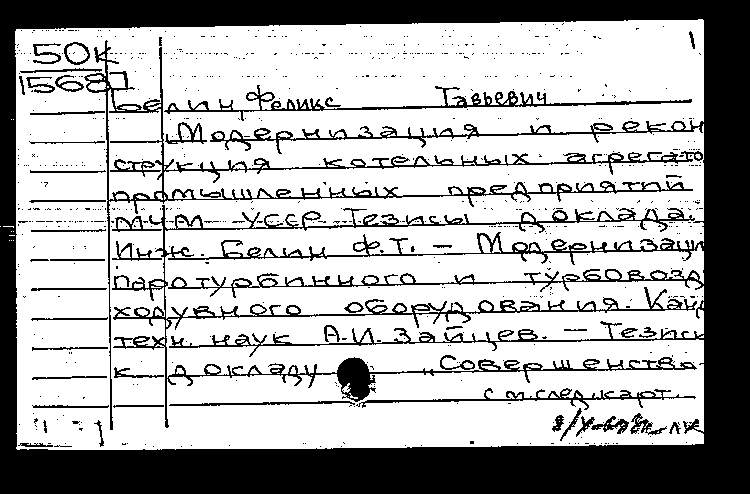 1
50к
568
Белин, Феликс Тавьевич
Модернизация и рекон
струкция котельных агрегато
промышленных предприятий
МЧМ УССР Тезисы доклада.
Инж. Белин Ф.Т. – Модернизаци
паротурбинного и турбовозд
ходувного оборудования. Канд
техн. наук А.И. Зайцев. – Тезисы
к докладу „Совершенства
см след. карт.